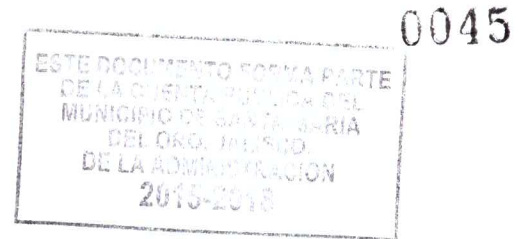 0045
ESTE DOCUMENTO FORMA PARTE
DE LA CUENTA PUBLICA DEL
MUNICIPIO DE SANTA MARIA
DEL ORO, JALISCO.
DE LA ADMINISTRACION
2015-2018